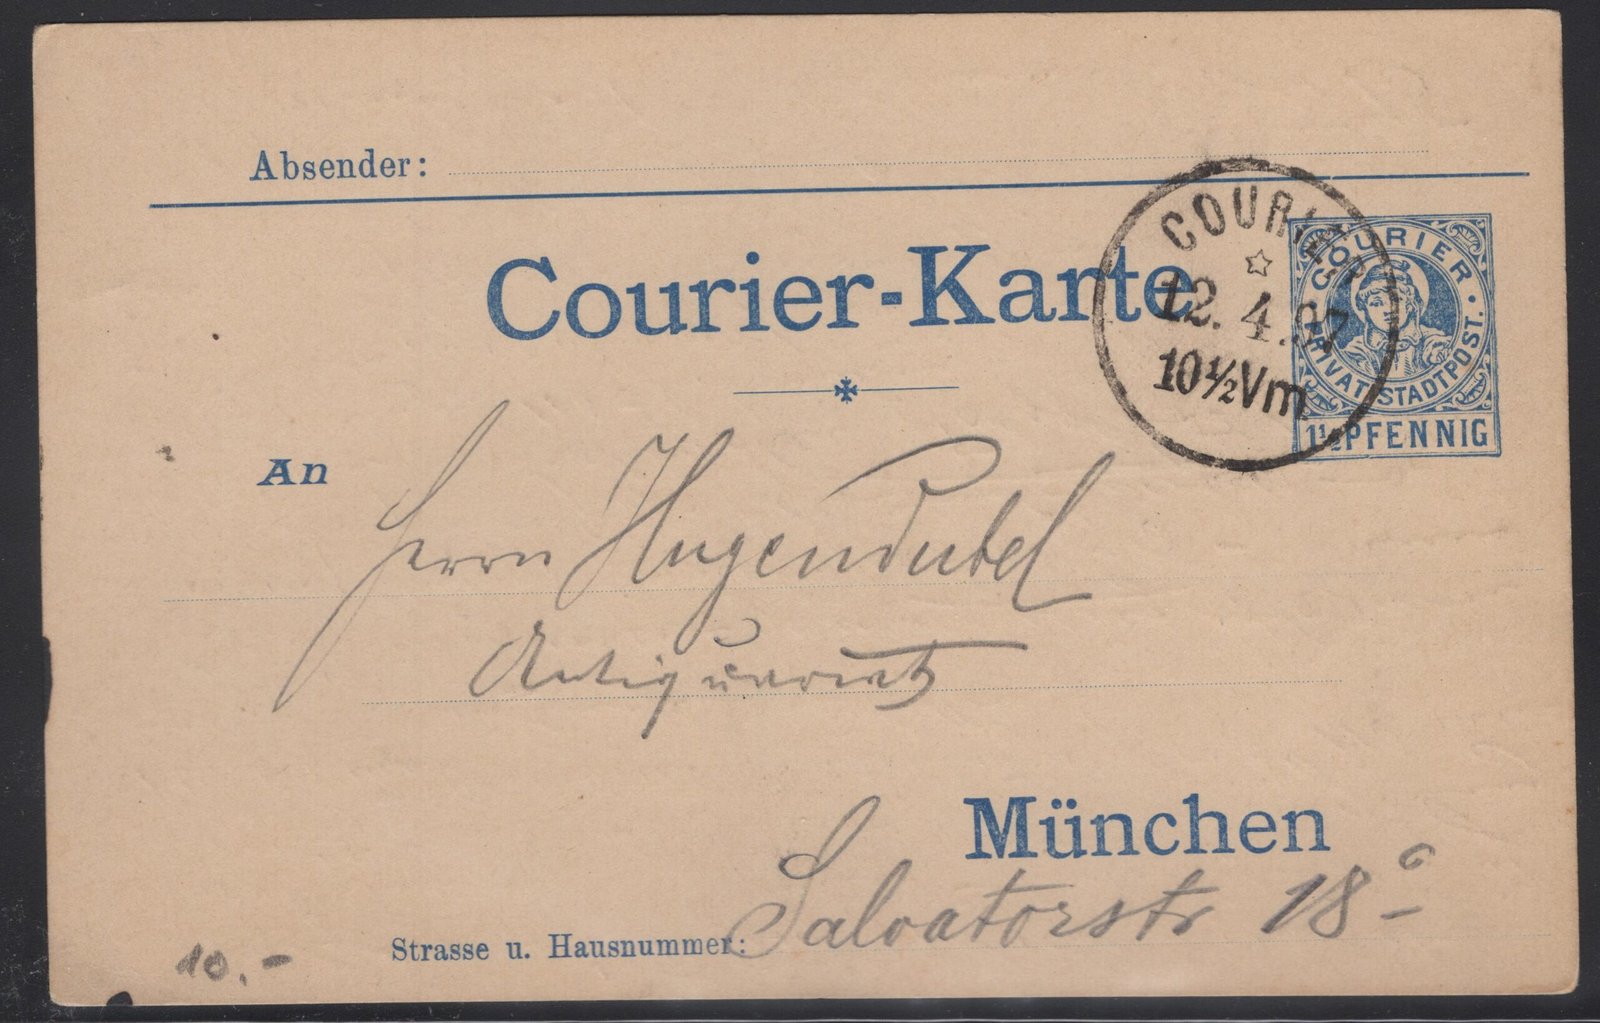 Absender:
Courier-Karte
COURIER
12. 4. 97
10½Vm.
COURIER
PRIVAT-STADTPOST.
1½ PFENNIG
An
Herrn Hugendubel
Antiquariat
München
Strasse u. Hausnummer: Salvatorstr 18
10.-